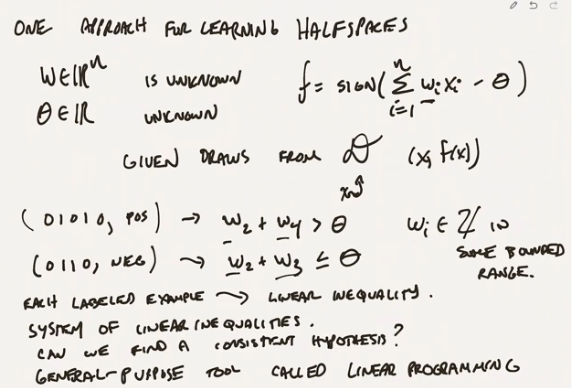 ONE APPROACH FOR LEARNING HALFSPACES
W∈ℝⁿ IS UNKNOWN f = SIGN(∑ᵢ₌₁ⁿ wᵢxᵢ - θ)
θ∈ℝ UNKNOWN
GIVEN DRAWS FROM 𝒟 (x, f(x))
x~𝒟
(01010, POS) → w₂ + w₄ > θ wᵢ ∈ ℤ IN
(0110, NEG) → w₂ + w₃ ≤ θ SOME BOUNDED
RANGE.
EACH LABELED EXAMPLE → LINEAR INEQUALITY.
SYSTEM OF LINEAR INEQUALITIES.
CAN WE FIND A CONSISTENT HYPOTHESIS?
GENERAL-PURPOSE TOOL CALLED LINEAR PROGRAMMING